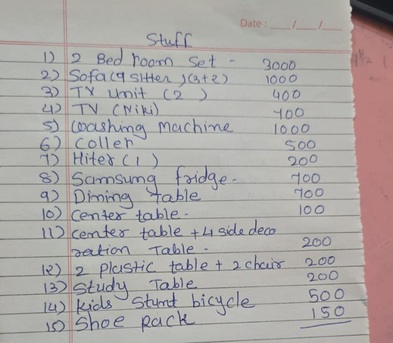 Date: __/__/__
Stuff
1) 2 Bed room Set - 3000
2) Sofa (9 sitter) (3+2) 1000
3) TV Unit (2) 400
4) TV (Niki) 400
5) Washing Machine 1000
6) Coller 500
7) Hiter (1) 200
8) Samsung fridge. 700
9) Dining Table 700
10) Center table. 100
11) center table + 4 side deco
ration Table. 200
12) 2 plastic table + 2 chair 200
13) Study Table 200
14) Kids Stunt bicycle 500
15) Shoe Rack 150